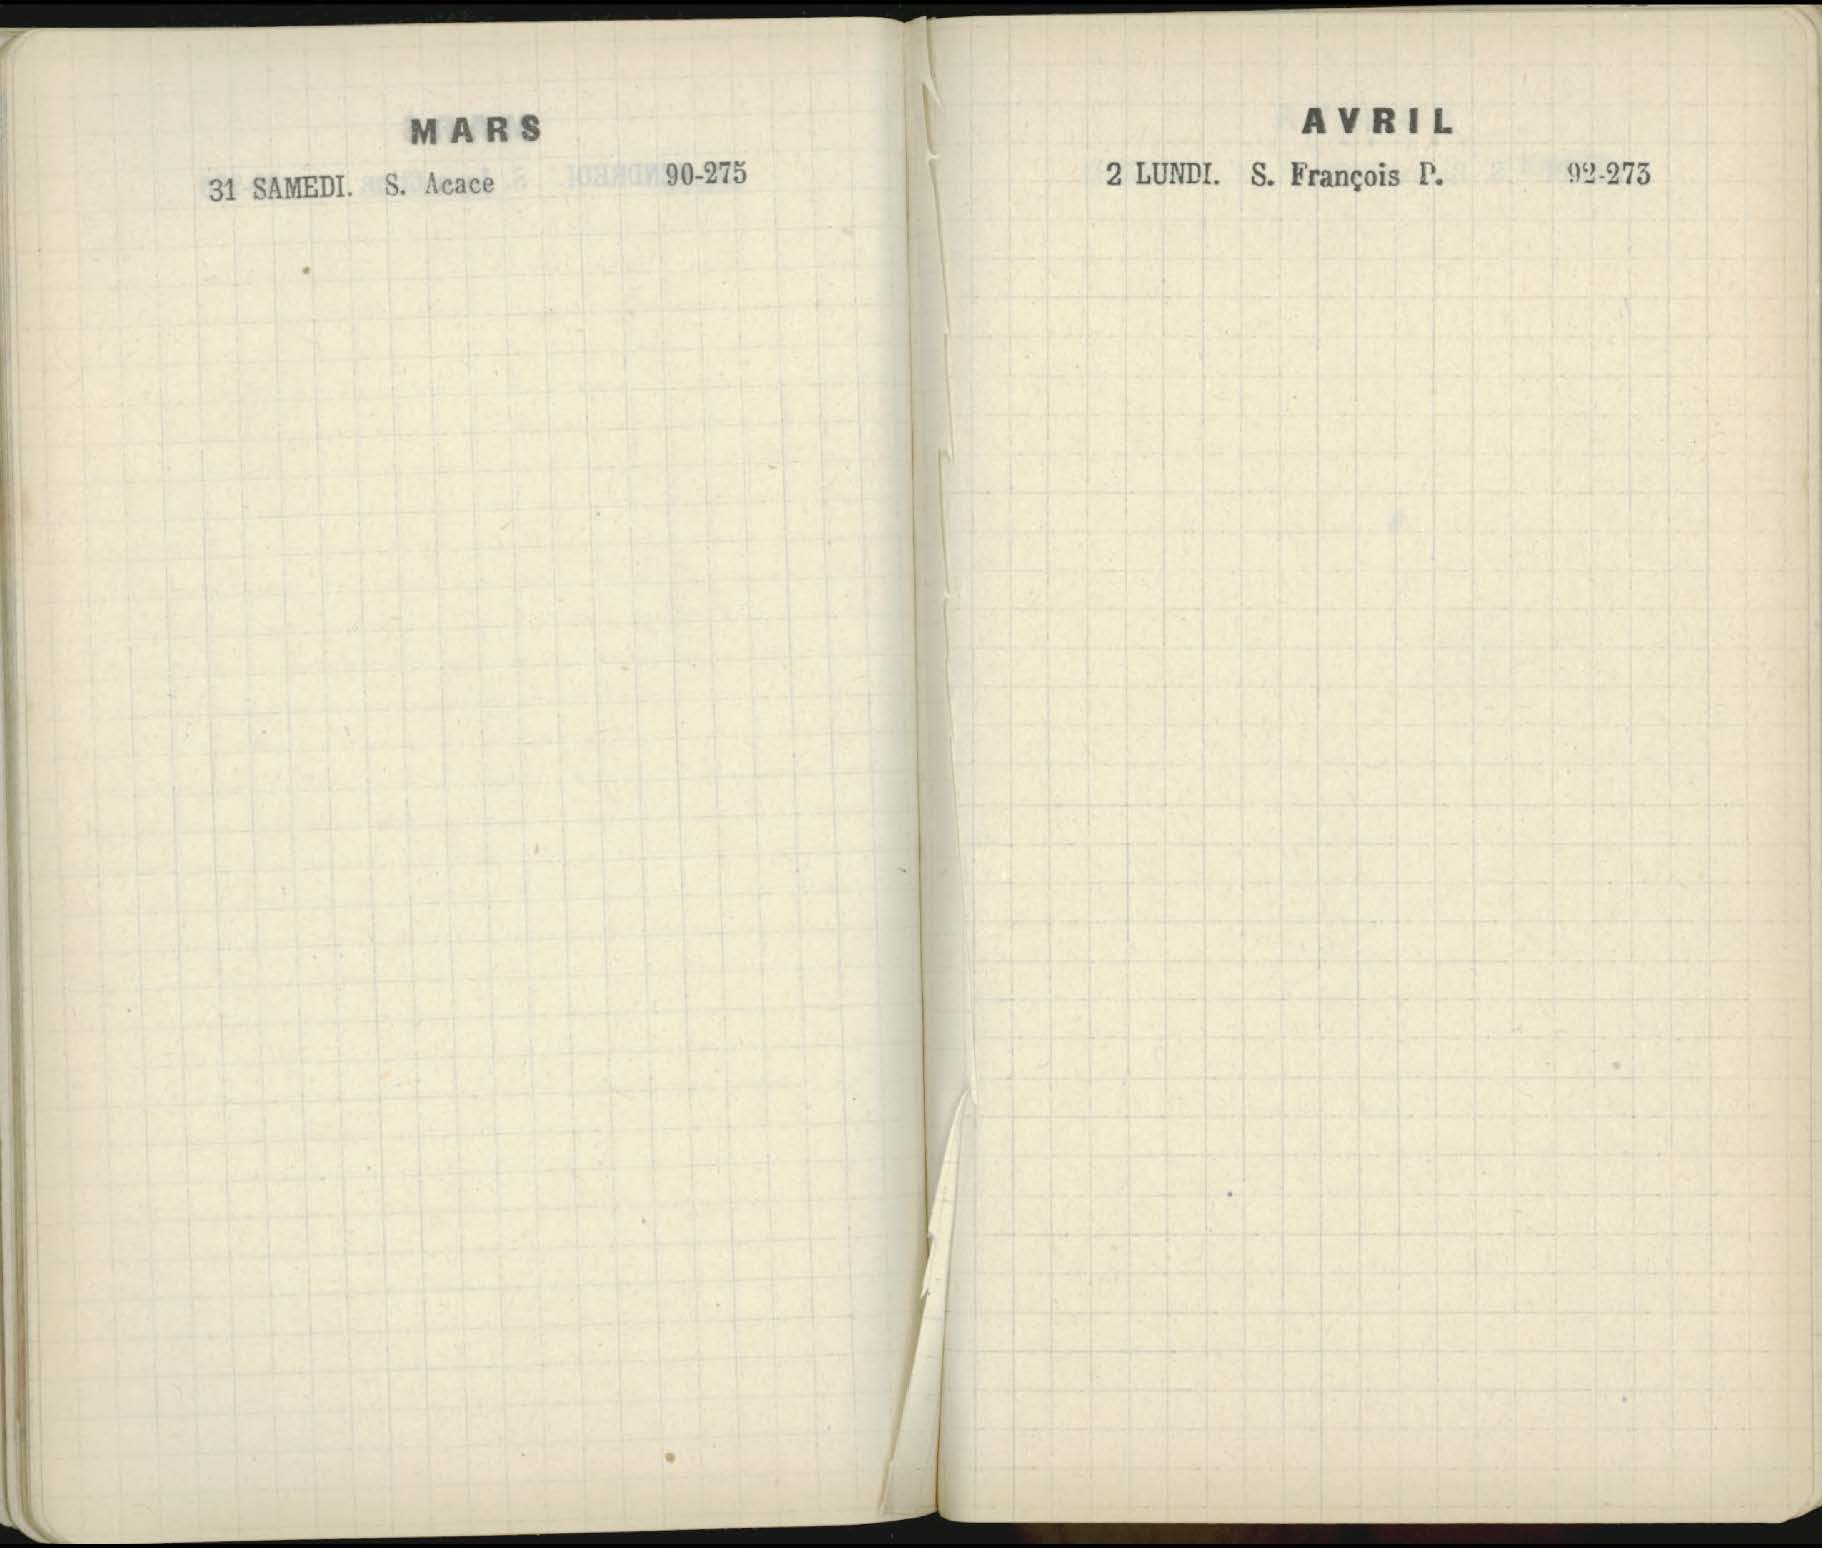 MARS
31 SAMEDI. S. Acace 90-275
AVRIL
2 LUNDI. S. François P. 92-273